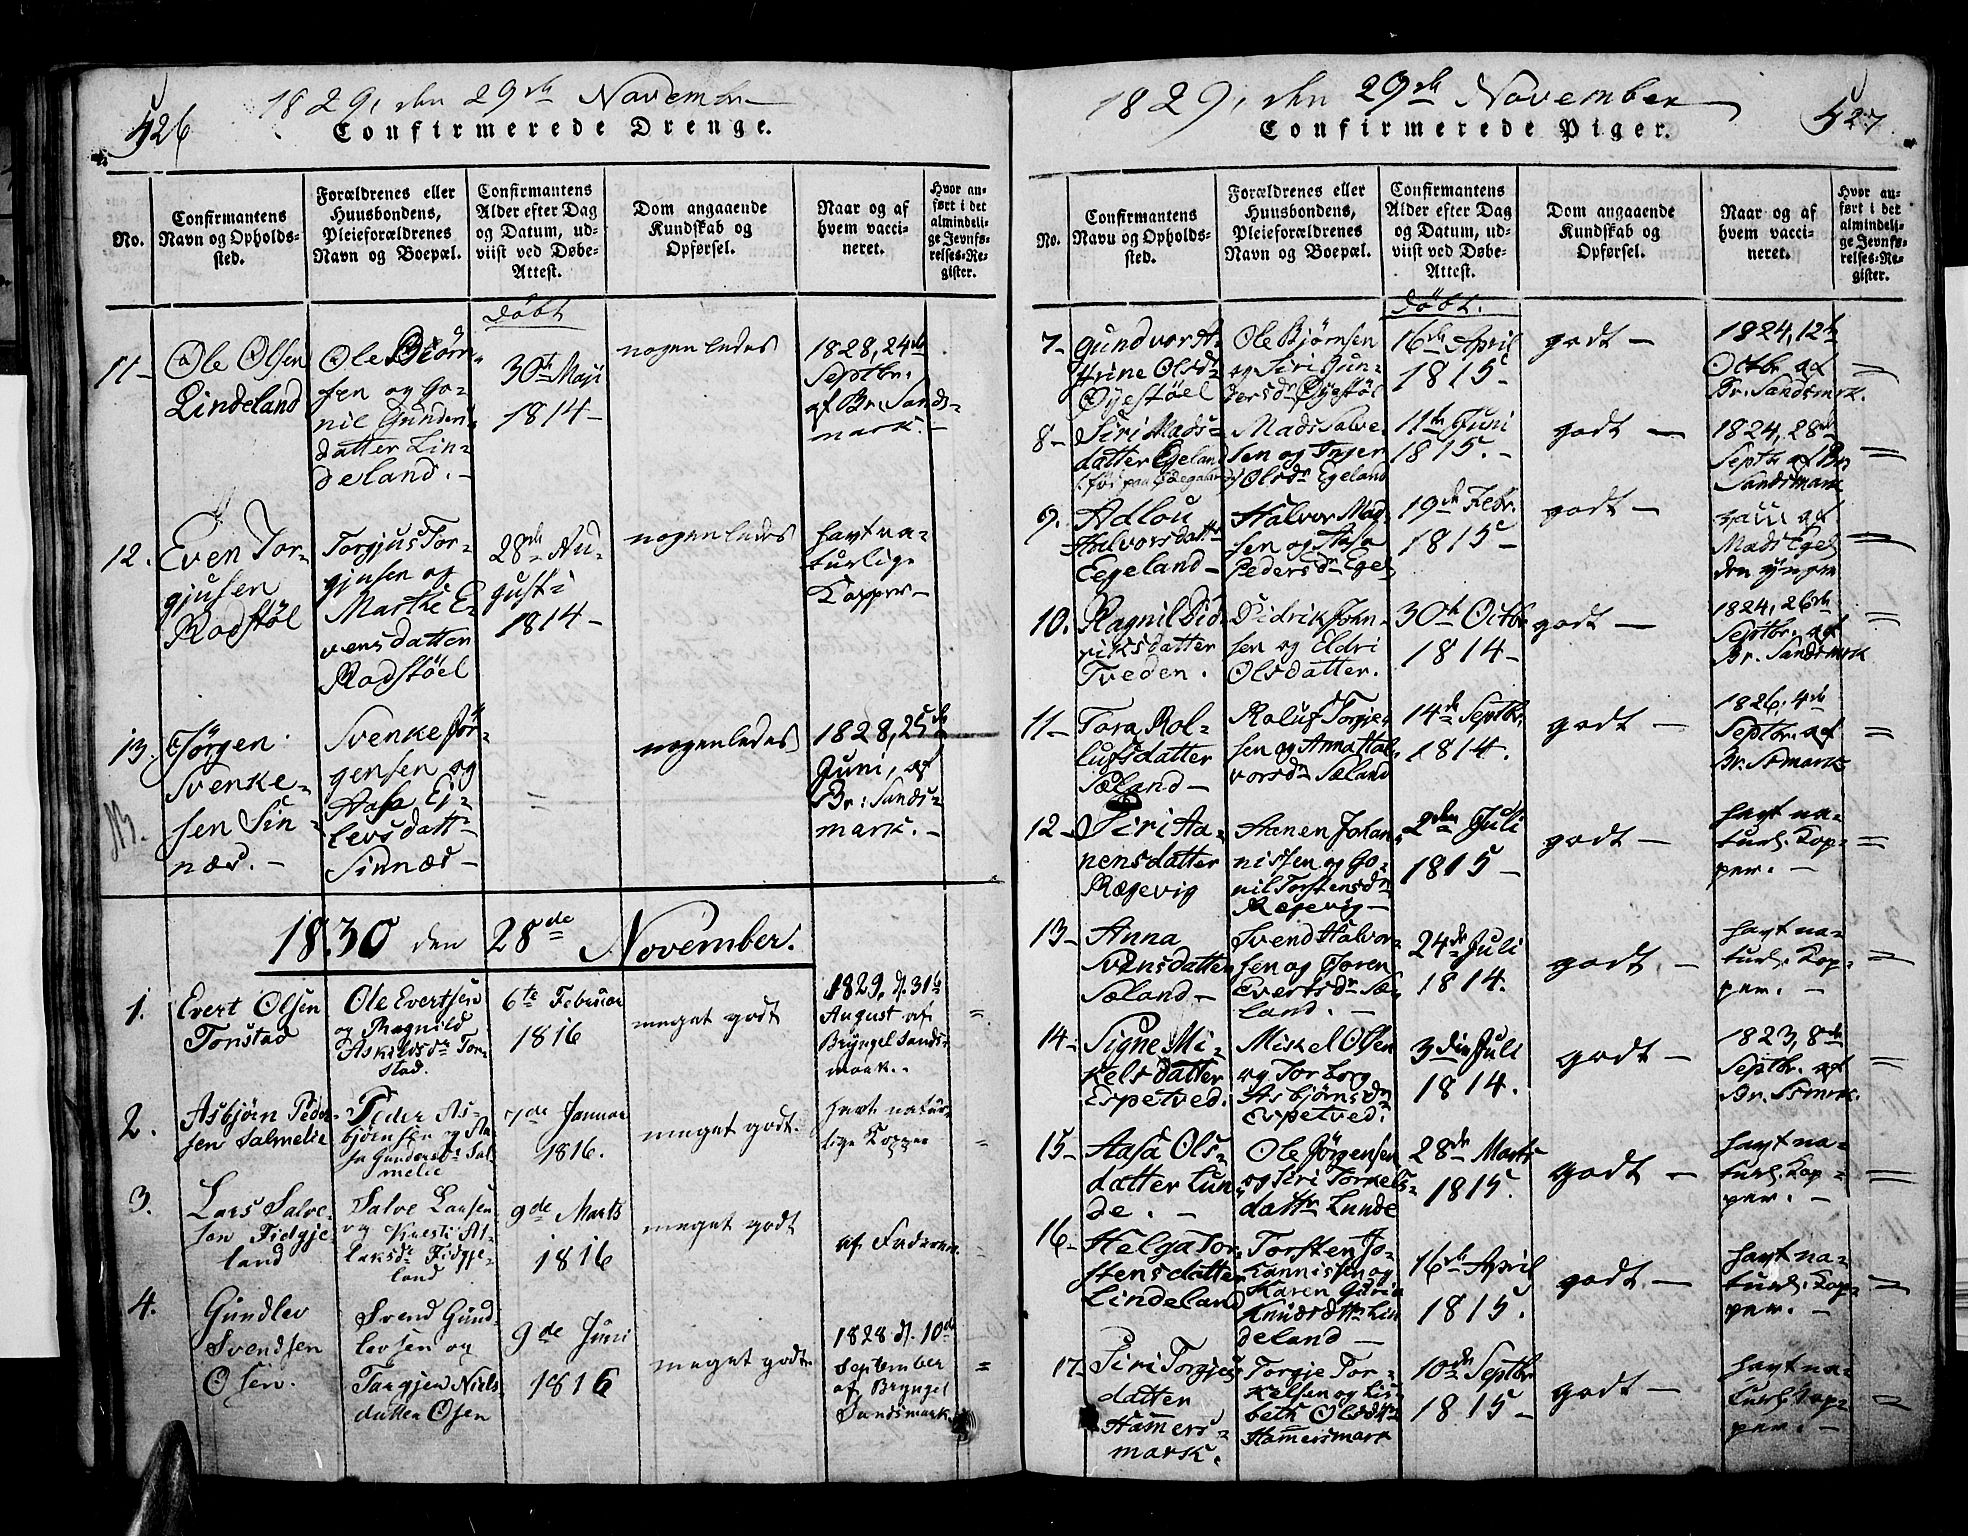 526
1829, den 29de November
Confirmerede Drenge.
No.
Confirmantens
Navn og Opholds-
sted.
Forældrenes eller
Huusbondens,
Pleieforældrenes
Navn og Boepæl.
Confirmantens
Alder efter Dag
og Datum, ud-
viist ved Døbe-
Attest.
Dom angaaende
Kundskab og
Opførsel.
Naar og af
hvem vacci-
neret.
Hvor an-
ført i det
almindeli-
ge Jevnfø-
relses-Re-
gister.
døbt
11-
Ole Olsen
Lindeland
Ole Biørn-
sen og Go-
nil Gunders
datter Lin-
deland. -
30te Maji
1814-
nogenledes
1828, 24de
Septbr.
af Br. Sands-
mark. -
12.
Even Tor-
gjusen
Rodstöl
Torgjus Tor-
gjusen og
Marthe E-
vensdatter
Rodstöel
28de Au-
gusti
1814-
nogenledes
havt na-
turlige
Kopper-
13.
Jörgen
Svenke-
sen Sin-
næs. -
Svenke Jör-
gensen og
Aasa Ej-
levsdatt-
Sinnæs-
=
nogenledes
1828, 25de
Juni, af
Br: Sands-
mark. -
1830 den 28de November.
1.
Evert Olsen
Tonstad
Ole Evertsen
og Ragnild
Askildsdr Ton-
stad.
6te Februar
1816
meget godt
1829, d. 31te
August af
Bryngel Sands-
mark.
=
2.
Asbjörn Peder-
sen Salmelie
Peder As-
bjørnsen og Aa-
sa Gundersdr Sal-
melie
7de Januar
1816.
meget godt.
havt natur-
lige Kopper
=
3.
Lars Salve-
sen Fidgje-
land
Salve Larsen
og Kirsti As-
laksdr Fidgje-
land
9de Marts
1816
meget godt
af Faderen.
=
4.
Gundlev
Svendsen
Osen.
Svend Gund-
levsen og
Targjer Niels-
datter Osen
9de Juni
1816
meget godt.
1828 d. 10de
September
af Bryngel
Sandsmark
=
527
1829, den 29de November
Confirmerede Piger.
No.
Confirmantens
Navn og Opholds-
sted.
Forældrenes eller
Huusbondens,
Pleieforældrenes
Navn og Boepæl.
Confirmantens
Alder efter Dag
og Datum, ud-
viist ved Døbe-
Attest.
Dom angaaende
Kundskab og
Opførsel.
Naar og af
hvem vacci-
neret.
Hvor an-
ført i det
almindeli-
ge Jevnfø-
relses-Re-
gister.
døbt.
7-
Gundvor A-
trine Olsdr
Øyestöel
Ole Bjørnsen
og Siri Gun-
dersdr Øyestöl
16de April
1815-
godt -
1824, 12te
Octbr af
Br. Sandsmrk.
=
8-
Siri Mads-
datter Egeland
Mads Salve-
sen og Inger
Olsdr Egeland
11te Juni
1815. -
godt -
1824, 28de
Septbr af Br.
Sandsmark
=
9.
Adlou
Halvorsdattr
Eegeland-
Halvor Mad-
sen og Aasa
Pedersdr Egel.
19de Febr.
1815-
godt -
Mads Egel
den yngre
=
10.
Ragnil Did-
riksdatter
Tveden.
Didrik John-
sen og Eldri
Olsdatter.
30te Octbr
1814-
godt -
1824, 26de
Septbr. af
Br. Sandsmrk
=
11-
Tora Rol-
lufsdatter
Sæland-
Roluf Torgje-
sen og Anna Hal-
vorsdr Sæland
14de Septbr.
1814.
godt -
1826, 4de
Septbr. af
Br. Ssmark
=
12-
Siri Aa-
nensdatter
Rægevig
Aanen Johan-
nissen og Go-
nil Torstensdr
Regevig-
2den Juli
1815-
godt -
havt na-
turl. Kop-
per. -
=
13-
Anna
Svensdatter
Sæland. -
Svend Halvor-
sen og Joren
Evertsdr Sæ-
land. -
24de Juli
1814.
godt. -
havt na-
turl. Kop-
per. -
=
14-
Signe Mi-
kelsdatter
Espetved.
Mikel Olsen
og Torborg
Asbjørnsdr
Espetved.
3die Juli
1814.
godt -
1823, 8de
Septbr. af
Br. Ssmrk.
=
15-
Aasa Ols-
datter Lun-
de. -
Ole Jørgensen
og Siri Torkels-
dattr Lunde
28de Marts
1815.
godt -
havt na-
turl. Kop-
per. -
=
16-
Helga Tor-
stensdatter
Lindeland
Torsten Jo-
hannissen og
Karen Guria
Knudsdttr Lin-
deland -
16de April
1815.
godt. -
havt na-
turl. Kop-
per. -
=
17-
Siri Torgjes-
datter
Hamers-
mark.
Torgje Tor-
kelsen og Lis-
beth Olsdttr
Hamersmark
10de Septbr
1815-
godt -
havt na-
turl. Kop-
per. -
=